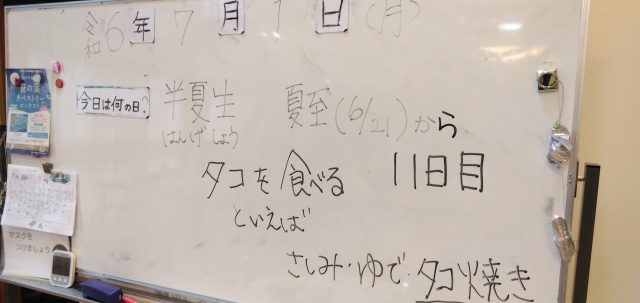 令和6年7月1日(月)
今日は何の日?
半夏生 夏至(6/21)から
はんげしょう
タコを食べる 11日目
といえば
さしみ・ゆで・タコ焼き
タペストリー
マスクを
つけましょう